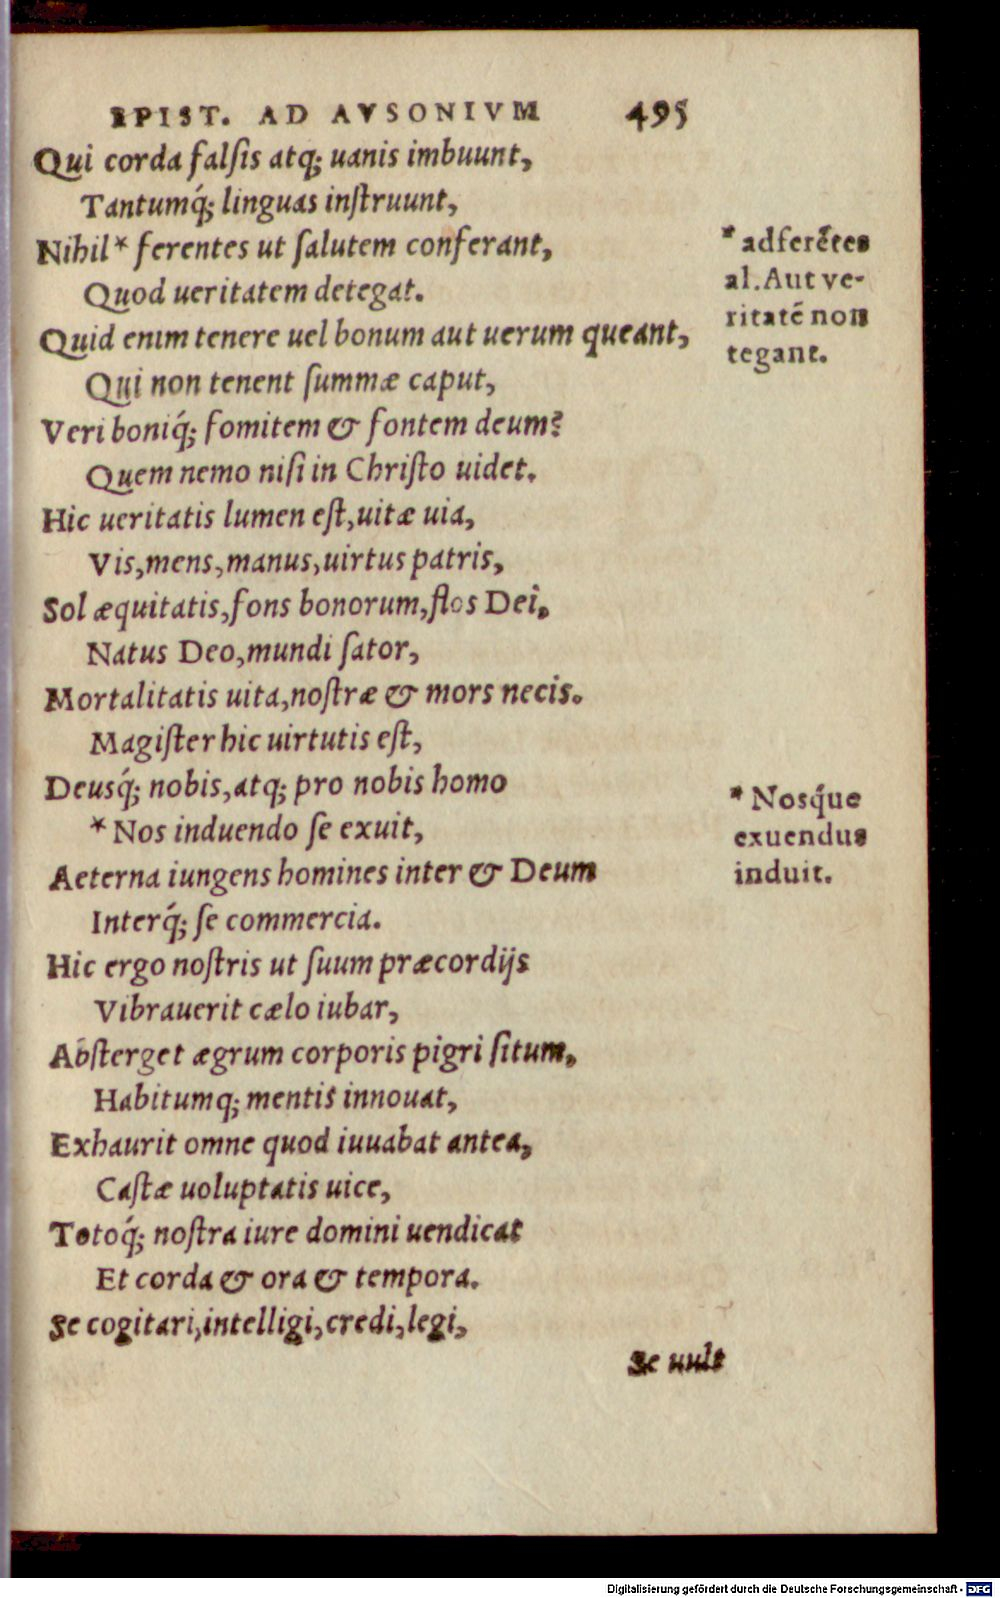 EPIST. AD AVSONIVM 495
Qui corda falſis atq; uanis imbuunt,
Tantumq́; linguas inſtruunt,
Nihil* ferentes ut ſalutem conferant,
Quod ueritatem detegat.
Quid enim tenere uel bonum aut uerum queant,
Qui non tenent ſummæ caput,
Veri boniq́; fomitem & fontem deum?
Quem nemo niſi in Chriſto uidet.
Hic ueritatis lumen eſt,uitæ uia,
Vis,mens,manus,uirtus patris,
Sol æquitatis,fons bonorum,flos Dei,
Natus Deo,mundi ſator,
Mortalitatis uita,noſtræ & mors necis.
Magiſter hic uirtutis eſt,
Deusq́; nobis,atq; pro nobis homo
*Nos induendo ſe exuit,
Aeterna iungens homines inter & Deum
Interq́; ſe commercia.
Hic ergo noſtris ut ſuum præcordijs
Vibrauerit cælo iubar,
Abſterget ægrum corporis pigri ſitum,
Habitumq; mentis innouat,
Exhaurit omne quod iuuabat antea,
Caſtæ uoluptatis uice,
Totoq́; noſtra iure domini uendicat
Et corda & ora & tempora.
Se cogitari,intelligi,credi,legi,
Se uult
* adferẽtes
al.Aut ve-
ritatẽ non
tegant.
* Nosq́ue
exuendus
induit.
Digitalisierung gefördert durch die Deutsche Forschungsgemeinschaft - DFG